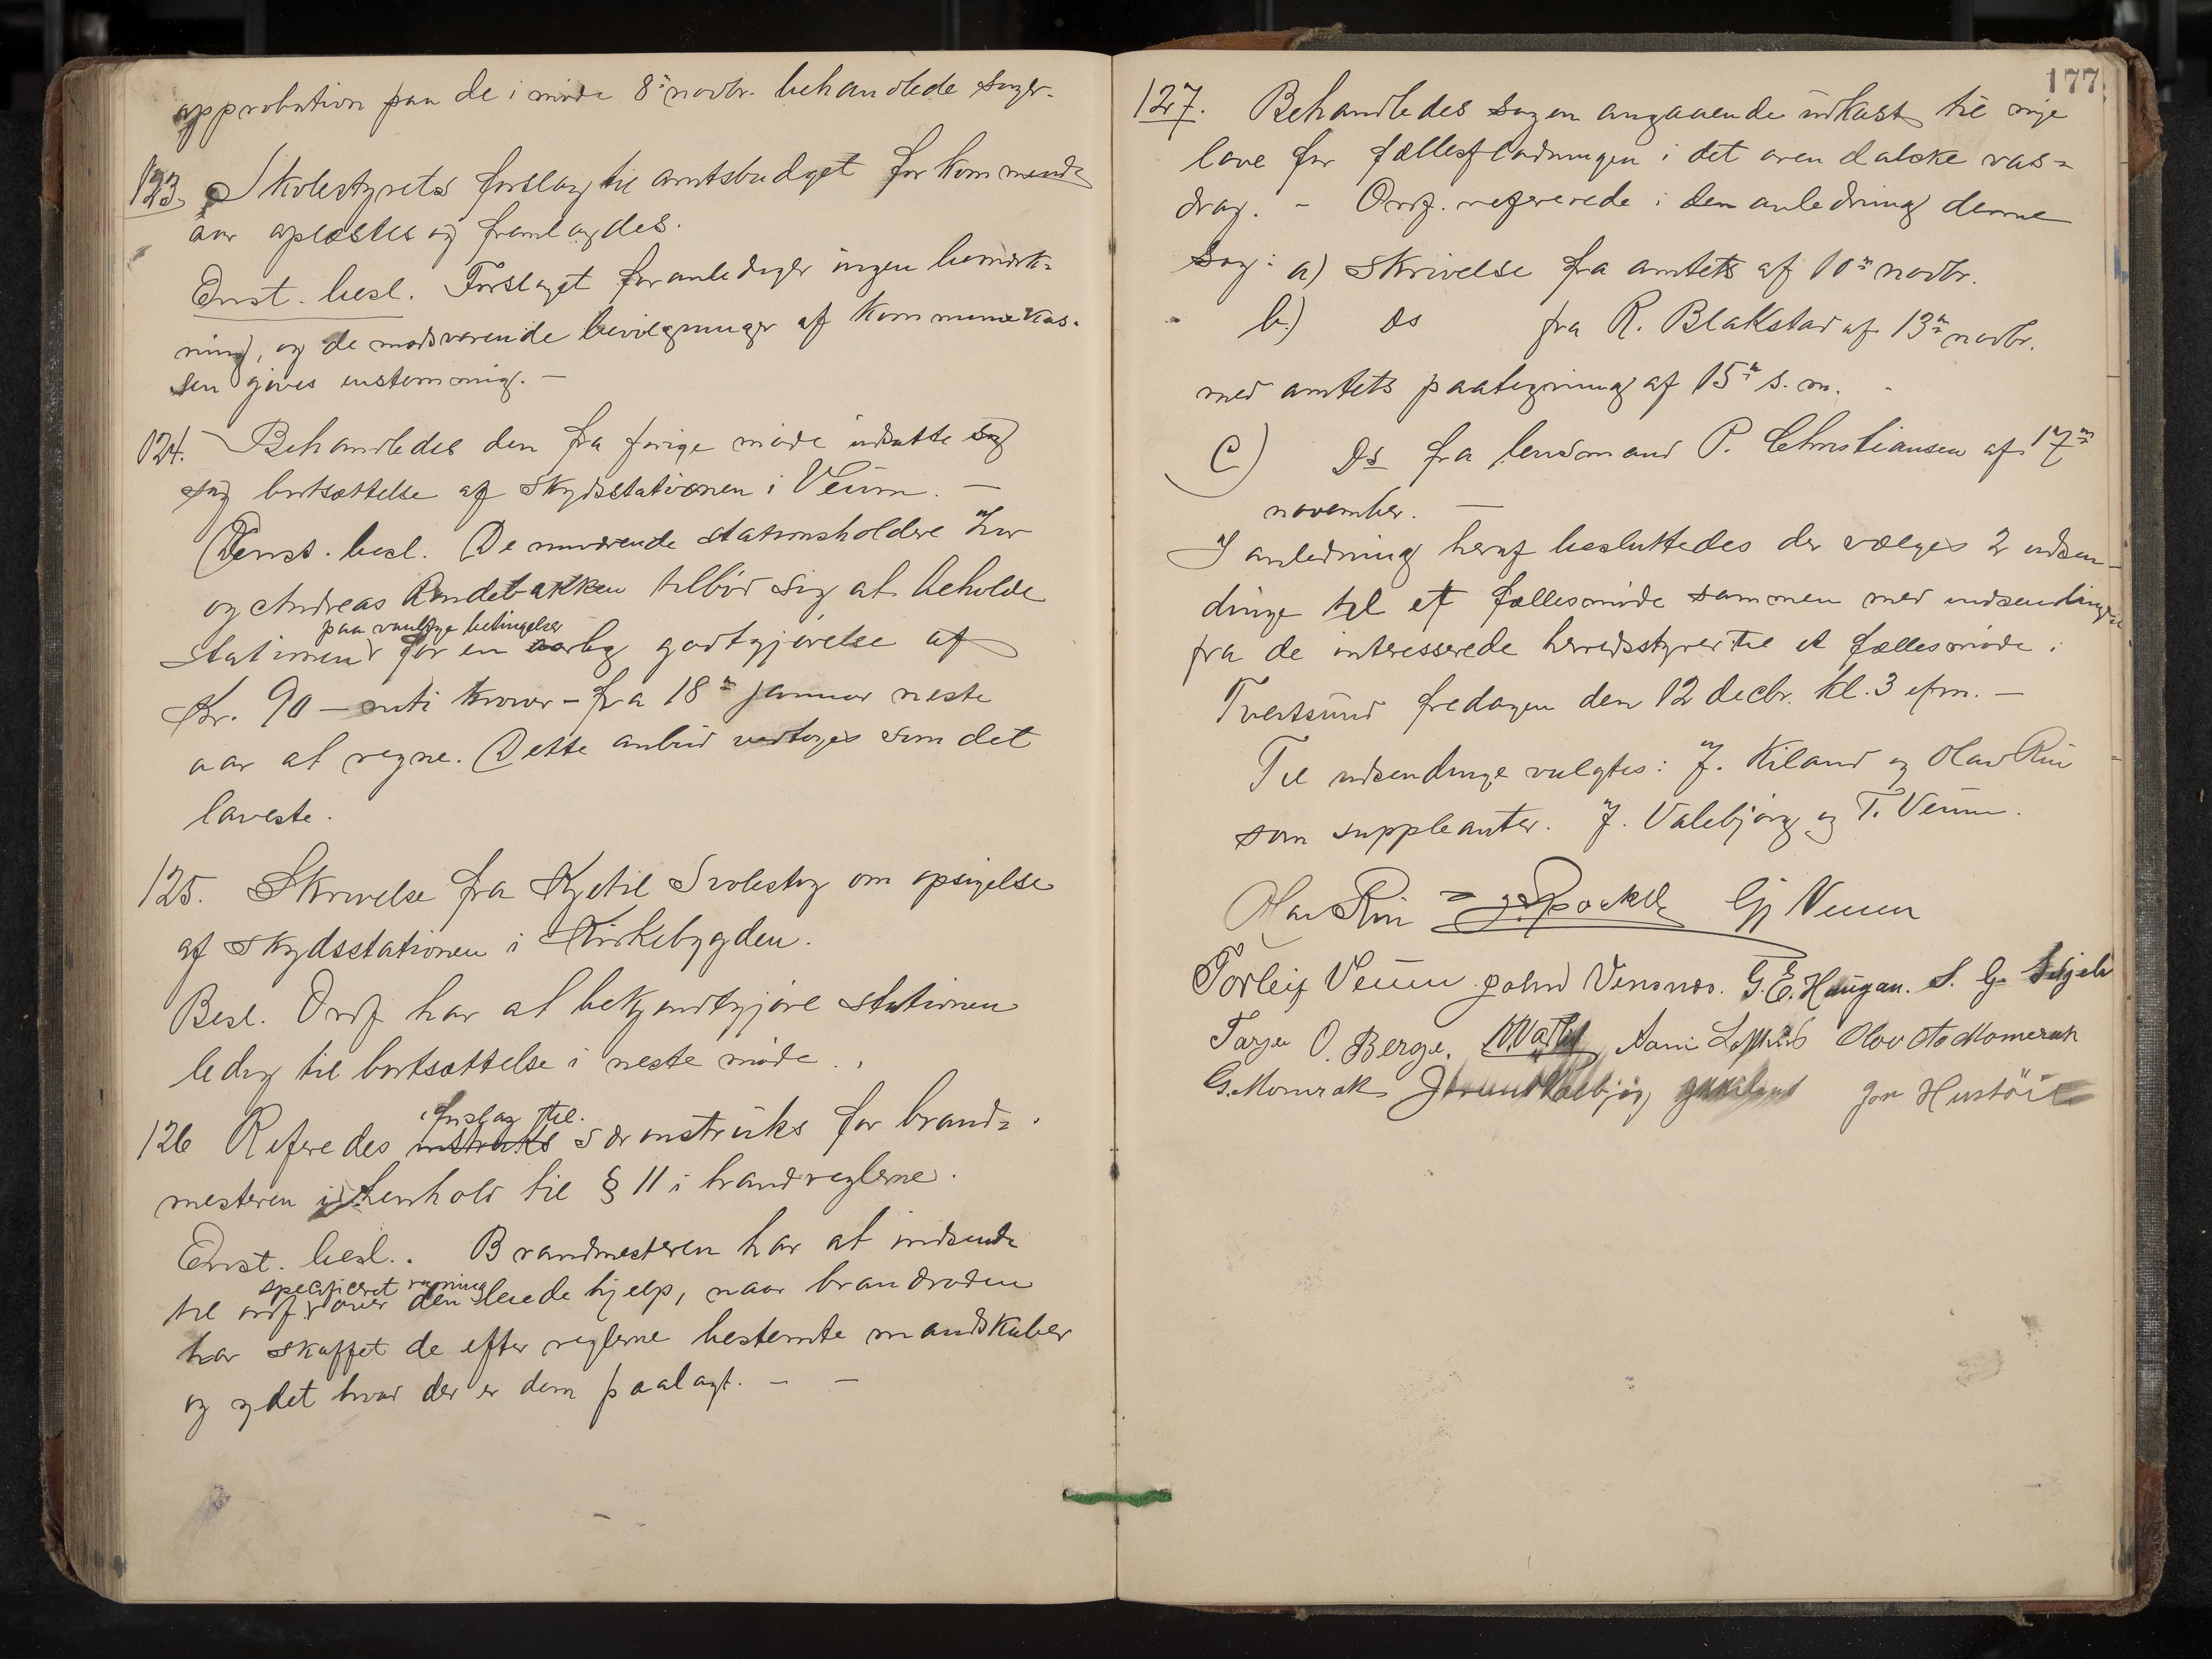 approbation paa de i möde 8de novbr. behandlede sager.
123. Skolestyrets forslag til amtsbudget for kommende
aar oplæstes og fremlagdes.
Enst. besl. Forslaget foranlediger ingen bemærk-
ning, og de modsvarende bevilgninger af kommunekas-
sen gives enstemmig. –
124. Behandledes den fra forige möde udsatte sag
bortsættelse af skydsstationen i Veum. –
Enst. besl. De nuværende stationsholdere
og Andreas Rindebakken tilbød sig at beholde
paa vanlige betingelser
stationen for en aarlig godtgjørelse af
Kr. 90 – nitti kroner – fra 18de januar neste
aar at regne. Dette anbud vedtoges som det
laveste.
125. Skrivelse fra Kjetil Svolestog om opsigelse
af skydsstationen i Kirkebygden.
Besl. Ordf har at bekjendtgjøre stationen
ledig til bortsættelse i neste möde.
forslag til
126 Referedes instruks særinstruks for brand-
mesteren i henhold til § 11 i brandreglerne.
Enst. besl.. Brandmesteren har at indsende
specificeret regning
til ordf. over den leiede hjelp, naar brandroden
har skaffet de efter reglerne bestemte mandskaber
og ydet hvad der er dem paalagt. – –
177
127. Behandledes sagen angaaende udkast til nye
love for fællesflødningen i det arendalske vas-
drag. – Ordf. refererede i den anledning denne
sag: a) Skrivelse fra amtets af 10de novbr.
b.) Ds fra R. Blakstad af 13de novbr.
med amtets paategning af 15de s.m.
C) Ds fra lensmand P. Christiansen af 17de
november. –
I anledning heraf besluttedes der vælges 2 udsen-
dinge til et fællesmöde sammen med udsendinge
fra de interesserede herredsstyrer til et fællesmöde i
Tveitsund fredagen den 12 decbr. kl. 3 efm. –
Til udsendinge valgtes: J. Kiland og Olav Rui
som suppleanter. J. Valebjørg og T. Veum.
Olav Rui Gj Veum
Torleif Veum John Vensnes. G. E. Haugan. S. G.
Tarjei O. Berge. Olav Momrak
G. Momrak Valebjørg Jon Hustöit